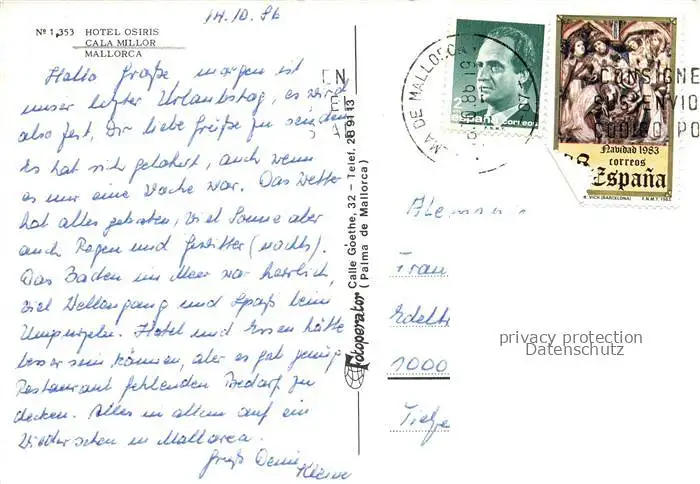 14.10.86
Nº 1.353 HOTEL OSIRIS
CALA MILLOR
MALLORCA
Hallo Große, morgen ist
unser letzter Urlaubstag, es wird
also Zeit, Dir liebe Grüße zu senden.
Es hat sich gelohnt, auch wenn
es nur eine Woche war. Das Wetter
hat alles geboten, viel Sonne aber
auch Regen und Gewitter (nachts).
Das Baden im Meer war herrlich,
viel Wellengang und Spaß beim
Umpurzeln. Hotel und Essen hätte
besser sein können, aber es gab genug
Restaurant fehlenden Bedarf zu
decken. Alles in allem auf ein
Wiedersehen in Mallorca.
Gruß Deine
Kleine
Fotoperator
Calle Goethe, 32 - Telef. 28 91 13
( Palma de Mallorca )
MA DE MALLORCA
86
2
España correos
CONSIGNE
SUS ENVIO
CODIGO PO
Navidad 1983
correos
España
R. VICH (BARCELONA) F.N.M.T. 1983
Frau
1000
privacy protection
Datenschutz